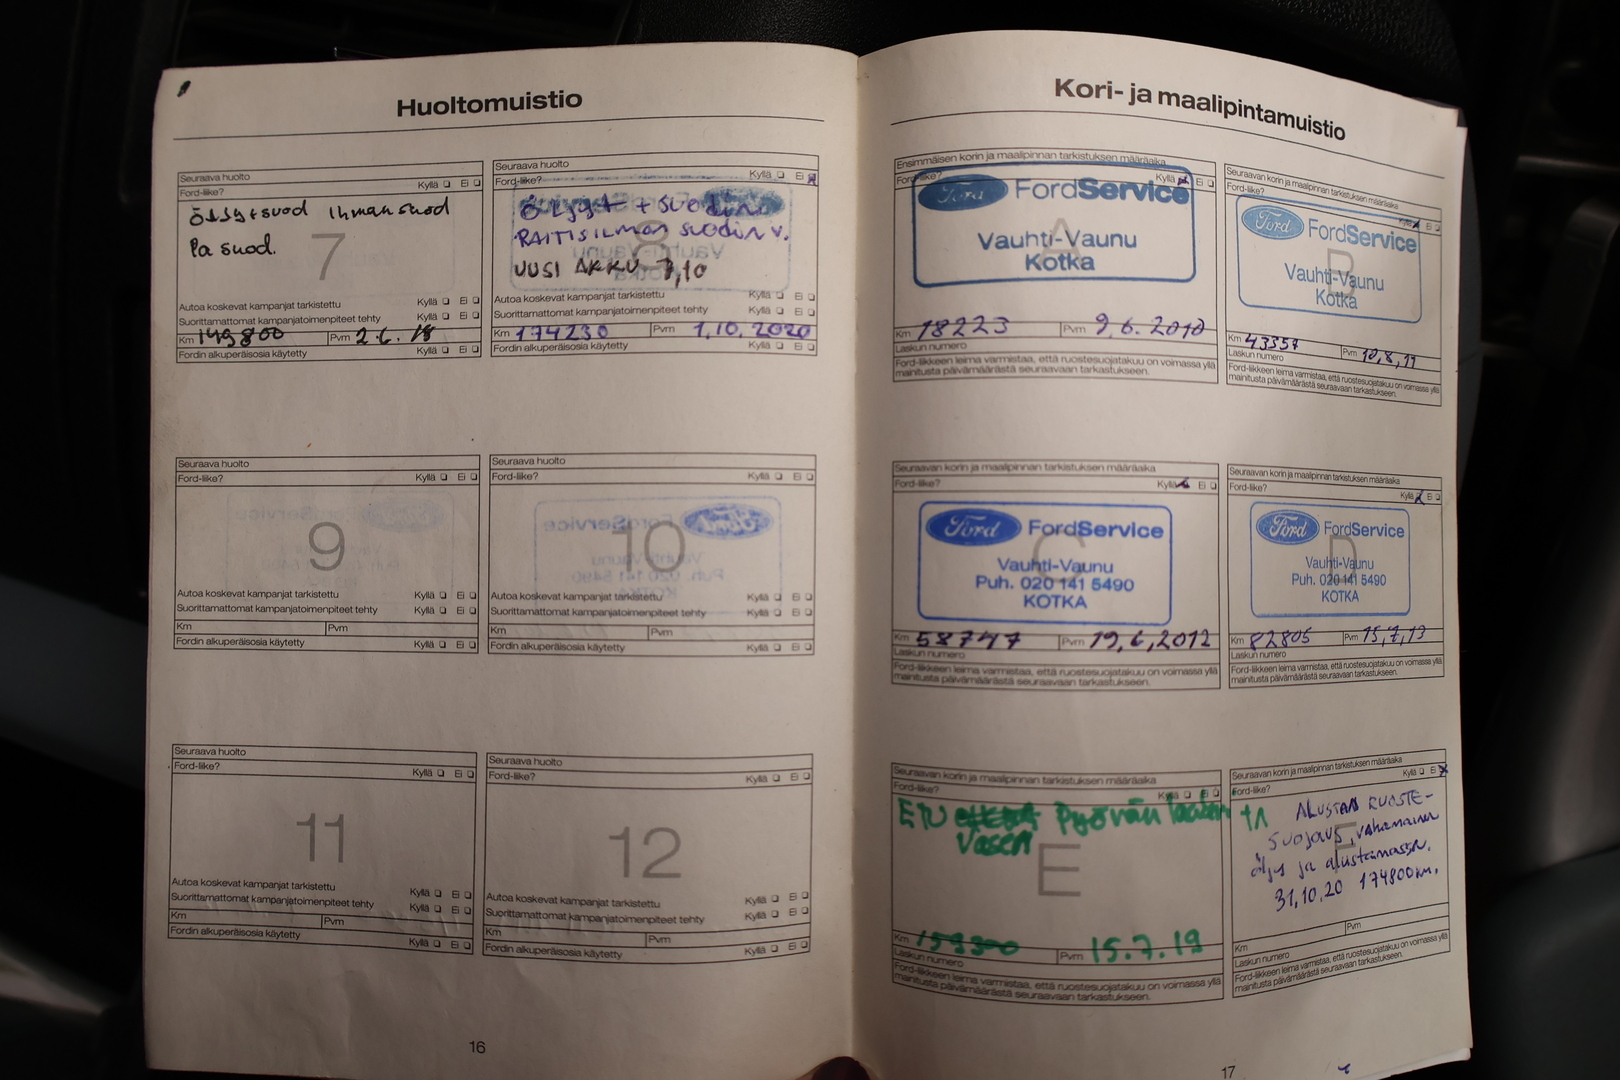 Huoltomuistio
Seuraava huolto
Ford-liike? Kyllä Ei
Öljy+suod Ilman suod
Pa suod.
7
Autoa koskevat kampanjat tarkistettu Kyllä Ei
Suorittamattomat kampanjatoimenpiteet tehty Kyllä Ei
Km 149800 Pvm 2.6. 18
Fordin alkuperäisosia käytetty Kyllä Ei
Seuraava huolto
Ford-liike? Kyllä Ei
Öljyt + suodin
RAITISILMAN SUODIN V.
8
UUSI AKKU 7,10
Autoa koskevat kampanjat tarkistettu Kyllä Ei
Suorittamattomat kampanjatoimenpiteet tehty Kyllä Ei
Km 174230 Pvm 1.10. 2020
Fordin alkuperäisosia käytetty Kyllä Ei
Seuraava huolto
Ford-liike? Kyllä Ei
9
Autoa koskevat kampanjat tarkistettu Kyllä Ei
Suorittamattomat kampanjatoimenpiteet tehty Kyllä Ei
Km Pvm
Fordin alkuperäisosia käytetty Kyllä Ei
Seuraava huolto
Ford-liike? Kyllä Ei
10
Autoa koskevat kampanjat tarkistettu Kyllä Ei
Suorittamattomat kampanjatoimenpiteet tehty Kyllä Ei
Km Pvm
Fordin alkuperäisosia käytetty Kyllä Ei
Seuraava huolto
Ford-liike? Kyllä Ei
11
Autoa koskevat kampanjat tarkistettu Kyllä Ei
Suorittamattomat kampanjatoimenpiteet tehty Kyllä Ei
Km Pvm
Fordin alkuperäisosia käytetty Kyllä Ei
Seuraava huolto
Ford-liike? Kyllä Ei
12
Autoa koskevat kampanjat tarkistettu Kyllä Ei
Suorittamattomat kampanjatoimenpiteet tehty Kyllä Ei
Km Pvm
Fordin alkuperäisosia käytetty Kyllä Ei
16
Kori- ja maalipintamuistio
Ensimmäisen korin ja maalipinnan tarkistuksen määräaika
Ford-liike? Kyllä Ei
Ford FordService
A
Vauhti-Vaunu
Kotka
Km 18223 Pvm 9.6.2010
Laskun numero
Ford-liikkeen leima varmistaa, että ruostesuojatakuu on voimassa yllä
mainitusta päivämäärästä seuraavaan tarkastukseen.
Seuraavan korin ja maalipinnan tarkistuksen määräaika
Ford-liike? Kyllä Ei
Ford FordService
B
Vauhti-Vaunu
Kotka
Km 43357 Pvm 10,8,11
Laskun numero
Ford-liikkeen leima varmistaa, että ruostesuojatakuu on voimassa yllä
mainitusta päivämäärästä seuraavaan tarkastukseen.
Seuraavan korin ja maalipinnan tarkistuksen määräaika
Ford-liike? Kyllä Ei
Ford FordService
C
Vauhti-Vaunu
Puh. 020 141 5490
KOTKA
Km 58747 Pvm 19,6,2012
Laskun numero
Ford-liikkeen leima varmistaa, että ruostesuojatakuu on voimassa yllä
mainitusta päivämäärästä seuraavaan tarkastukseen.
Seuraavan korin ja maalipinnan tarkistuksen määräaika
Ford-liike? Kyllä Ei
Ford FordService
D
Vauhti-Vaunu
Puh. 020 141 5490
KOTKA
Km 82805 Pvm 15,7,13
Laskun numero
Ford-liikkeen leima varmistaa, että ruostesuojatakuu on voimassa yllä
mainitusta päivämäärästä seuraavaan tarkastukseen.
Seuraavan korin ja maalipinnan tarkistuksen määräaika
Ford-liike? Kyllä Ei
ETU Pyörän
Vasen
E
Km 159300 Pvm 15.7.19
Laskun numero
Ford-liikkeen leima varmistaa, että ruostesuojatakuu on voimassa yllä
mainitusta päivämäärästä seuraavaan tarkastukseen.
Seuraavan korin ja maalipinnan tarkistuksen määräaika
Ford-liike? Kyllä Ei
ALUSTAN RUOSTE-
SUOJAUS, vahamainen
F
öljy ja alustamassa.
31,10.20 174800 km.
Km Pvm
Laskun numero
Ford-liikkeen leima varmistaa, että ruostesuojatakuu on voimassa yllä
mainitusta päivämäärästä seuraavaan tarkastukseen.
17